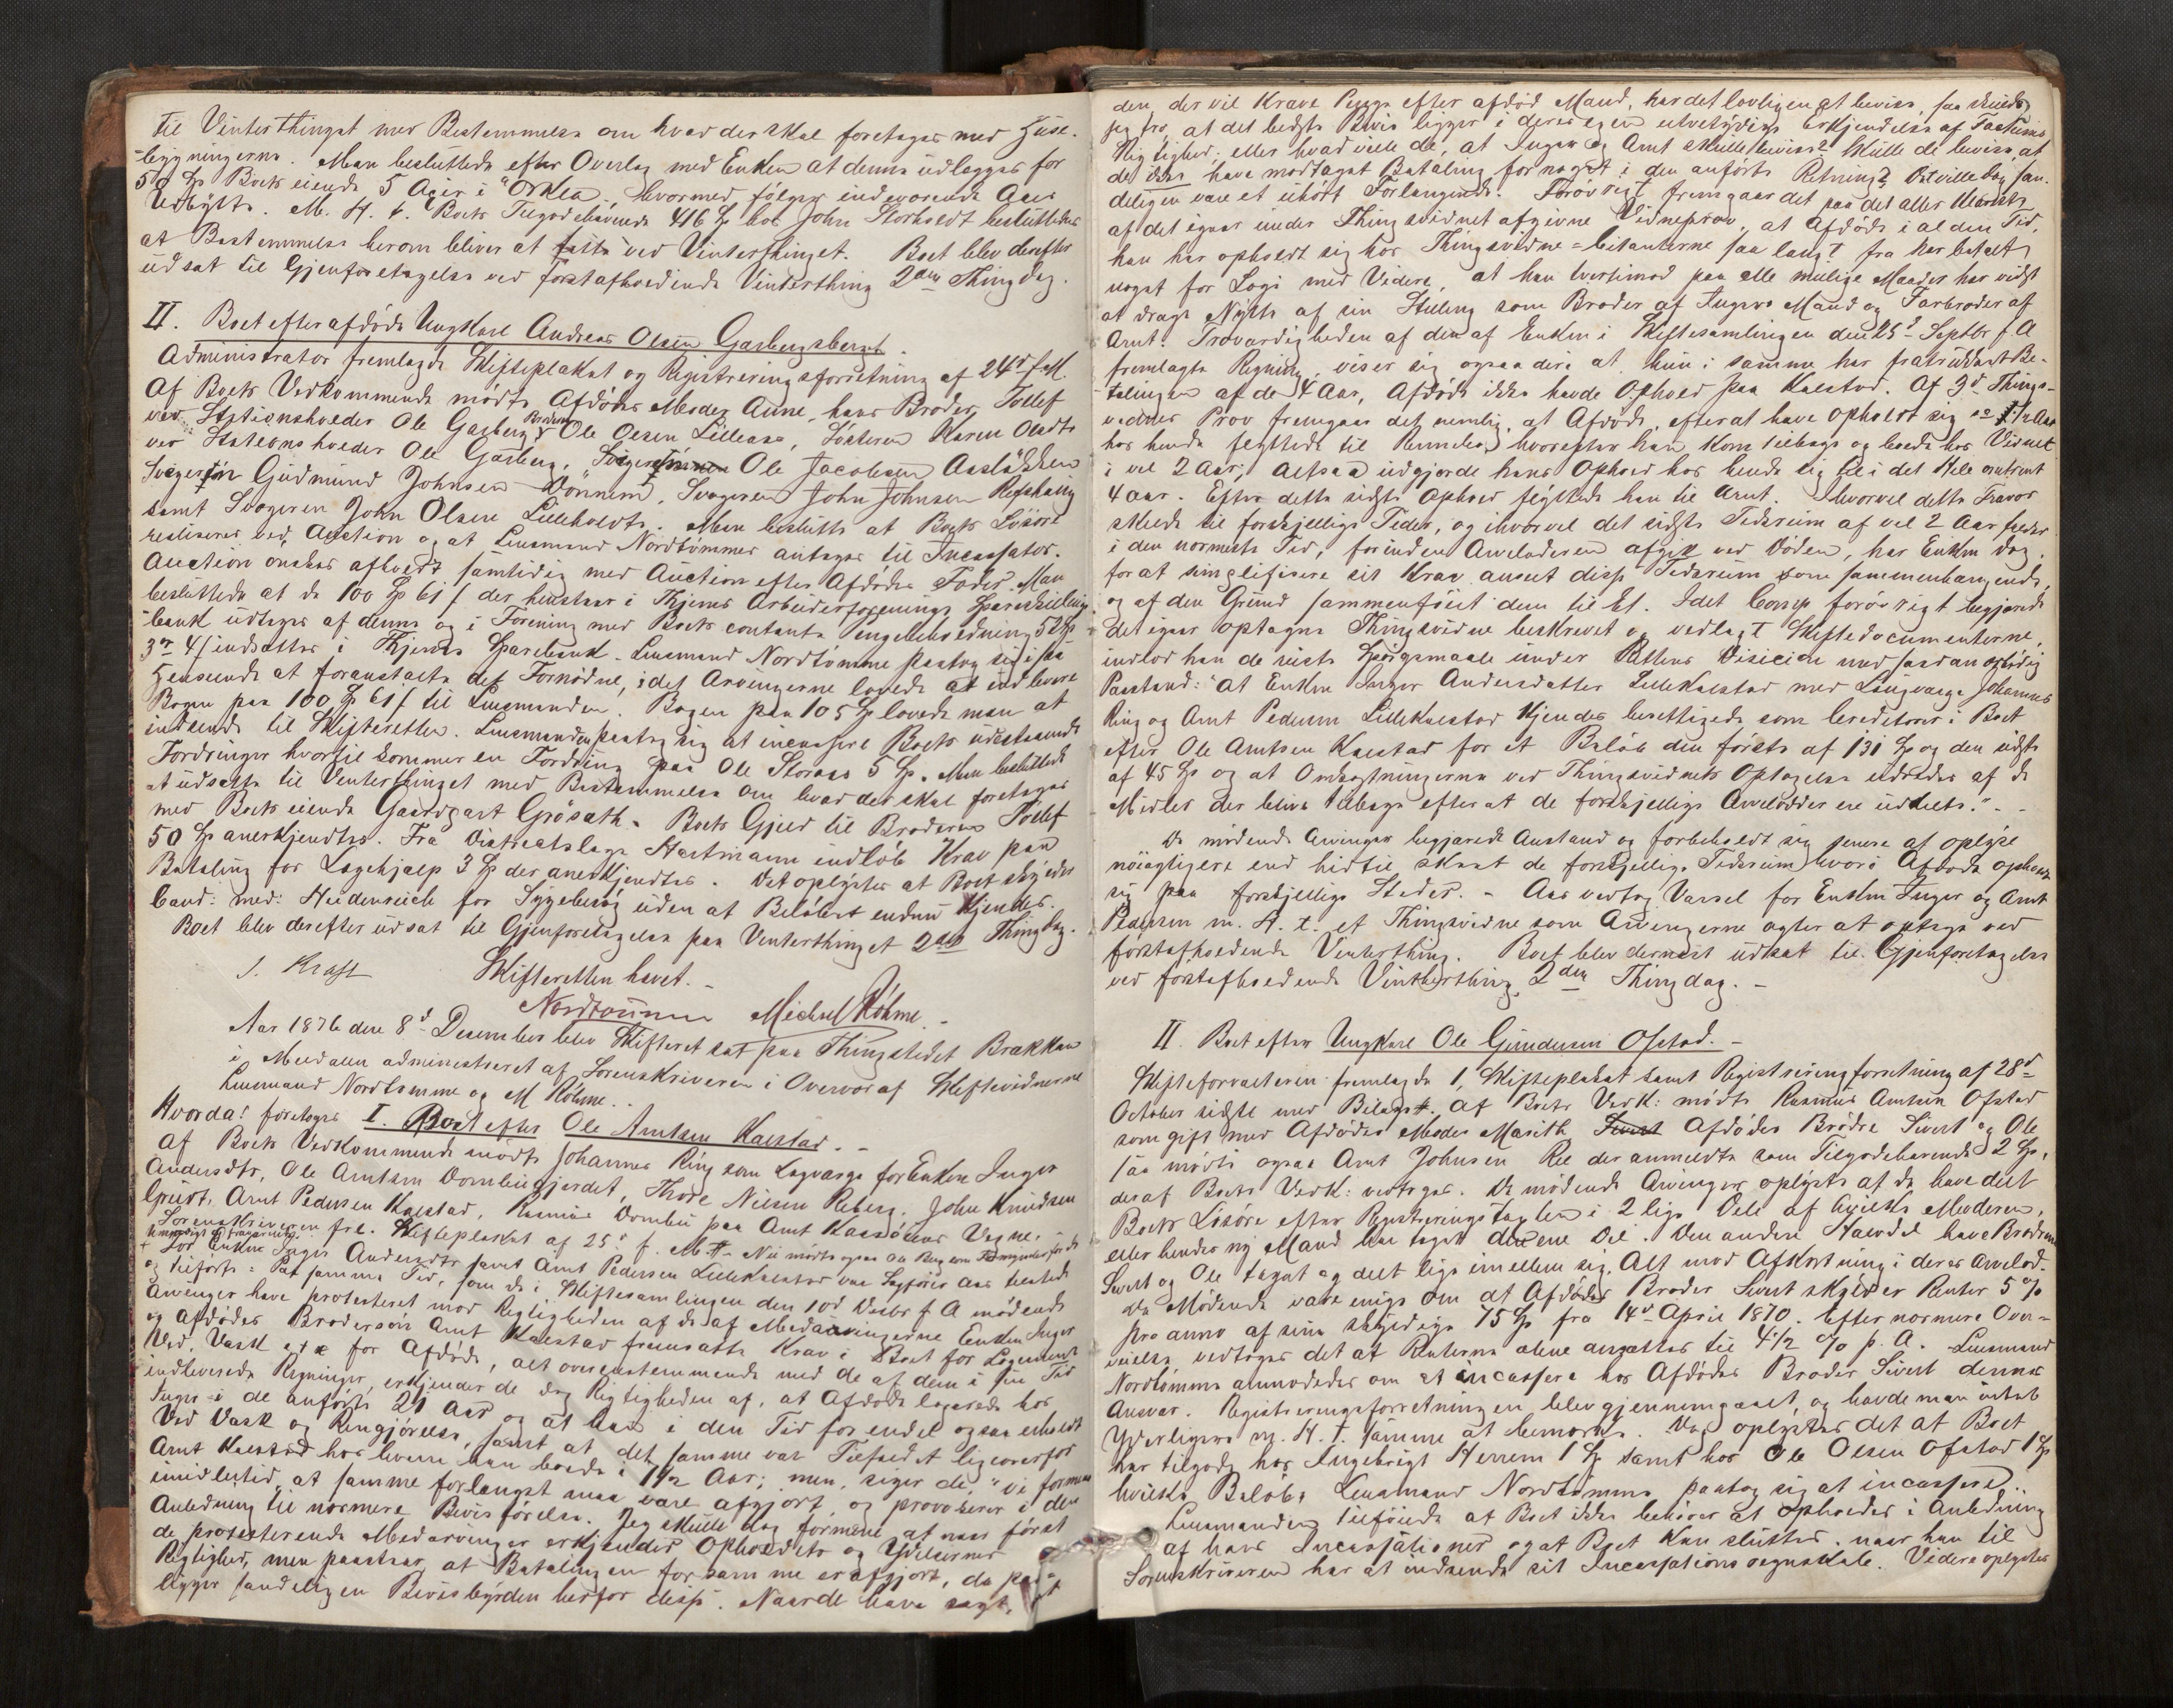 til Vinterthinget med Bestemmelse om hvad der skal foretages med Huse-
bygningerne. Man besluttede efter Overlæg med Enken at denne udlægges for
50 Sp Boets eiende 5 Ager i "Orklea, hvormed følger indeværende Aars
Udbytte. M. H. t. Boets Tilgodehavende 416 Sp hos John Storholdt besluttedes
at Bestemmelse herom bliver at fatte ved Vinterthinget. Boet blev derefter
udsat til Gjenforetagelse ved førstafholdende Vinterthing 2den Thingdag.
II. Boet efter afdøde Ungkarl Andreas Olsen Garbergsberget
Administrator fremlagde Skifteplakat og Registreringsforretning af 24d f. M.
Af Boets Vedkommende mødte Afdødes Moder Anne, hans Broder Tollef
ved Stationsholder Ole Garberg, Broderen Ole Olsen Lilleaas, Søsteren Karen Olsdtr
ved Stationsholder Ole Garberg, Svogeren Ole Jacobsen Aasløkken
Svogeren Gudmund Johnsen Dønnem, Svogeren John Johnsen Refshaug
samt Svogeren John Olsen Lilleholdt. Man besluttede at Boets Løsøre
realiseres ved Auction og at Lensmand Nordtømmer antages til Incassator.
Auction ønskes afholdt samtidig med Auction efter Afdødes Fader. Man
besluttede at de 100 Sp 61 s der henstaar i Thjems Arbeiderforenings Spareskillings-
bank udtages af denne og i Forening med Boets contante Pengebeholdning 52 Sp
3 ort 4 s indsættes i Thjems Sparebank. Lensmand Nordtømme paatog sig i saa
Henseende at foranstalte det Fornødne, idet Arvingerne lovede at indlevere
Bogen paa 100 Sp 61 s til Lensmanden. Bogen paa 105 Sp lovede man at
indsende til Skifteretten. Lensmanden paatog sig at incassere Boets udestaaende
Fordringer hvortil kommer en Fordring paa Ole Storaas 5 Sp. Man besluttede
at udsætte til Vinterthinget med Bestemmelse om hvad der skal foretages
med Boets eiende Gaardpart Grøsæth. Boets Gjeld til Broderen Tollef
50 Sp anerkjendtes. Fra Distriktslæge Hartmann indløb Krav paa
Betaling for Lægehjælp 3 Sp der anerkjendtes. Det oplystes at Boet skylder
Cand: med: Heidenreich for Sygebesøg uden at Beløbet endnu kjendes.
Boet blev derefter udsat til Gjenforetagelse paa Vinterthinget 2den Thingdag.
Skifteretten hævet.
J. Kraft Nordtømme Michael Røhme.
Aar 1876 den 8d December blev Skifteret sat paa Thingstedet Brækken
i Meldalen administreret af Sorenskriveren i Overvær af Skiftevidnerne
Lensmand Nordtømme og M Røhme.
Hvorda! foretoges I. Boet efter Ole Arntsen Kalstad.
Af Boets Vedkommende mødte Johannes Ring som Laugværge for Enken Inger
Andersdtr, Ole Arntsen Dombugjerdet, Thore Nielsen Reberg, John Knudsen
Arnt Pedersen Kalstad, Rasmus Dombu paa Arnt Vegne.
Sorenskriveren frl. Skifteplakat af 25d f. M.
For Enken Inger Andersdtr samt Arnt Pedersen Lillekalstad var
og tilførte: Paa samme Tid, som de i Skiftesamlingen den 10d f A mødende
Arvinger have protesteret mod Rigtigheden af de af Medarvingerne Enken Inger
og Afdødes Brodersøn Arnt Kalstad fremsatte Krav i Boet for Logement
Ved, Vask etc for Afdøde, alt overensstemmende med de af dem i sin Tid
indleverede Regninger, erkjender de dog Rigtigheden af, at Afdøde logerede hos
Inger i de anførte 21 Aar og at han i den Tid for endel ogsaa erholdt
Ved Vask og Rengjørelse, samt at det samme var Tilfældet ligeoverfor
Arnt Kalstad hos hvem han boede i 1 1/2 Aar; men, siger de, "vi formene
imidlertid, at samme forlængst maa være afgjort og provocerer i den
Anledning til nærmere Bevisførelse. Jeg skulde dog formene, at naar først
de protesterende Medarvinger erkjender Opholdets og Ydelsernes
Rigtighed, men paastaar, at Betalingen for samme er afgjort, da paa-
ligger sandeligen Bevisbyrden herfor disse. Naar de have sagt, at
den, der vil kræve Penge efter afdød Mand, har det lovligen at bevise, saa skulde
jeg tro, at det bedste Bevis ligger i deres egen utvetydige Erkjendelse af Factums
Rigtighed; eller hvad ville de, at Inger og Arnt skulle bevise? Skulle de bevise, at
de ikke have modtaget Betaling for noget i den anførte Retning? Det ville dog san-
deligen være et uhørt Forlangende. Forøvrigt fremgaar det paa det aller klareste
af det igaar under Thingsvidnet afgivne Vidneprov, at Afdøde i al den Tid,
han har opholdt sig hos Thingsvidne-Citanterne saa langt fra har betalt
noget for Logi med Videre, at han tvertimod paa alle mulige Maader har vidst
at drage Nytte af sin Stilling som Broder af Ingers Mand og Farbroder af
Arnt. Troværdigheden af den af Enken i Skiftesamlingen den 25d Septbr f. A
fremlagte Regning, viser sig ogsaa deri at hun i samme har fratrukket Be-
talingen af de 4 Aar, Afdøde ikke havde Ophold paa Kalstad. Af 3d Things-
vidnes Prov fremgaar det nemlig, at Afdøde, efterat have opholdt sig ca 1 1/2 Aar
hos hende flyttede til hvorefter han kom tilbage og boede hos Vidnet
i vel 2 Aar; altsaa udgjorde hans Ophold hos hende sig til i det Hele omtrent
4 aar. Efter dette sidste Ophold flyttede han til Arnt. Hvorvel dette Fravær
skede til forskjellige Tider, og ihvorvel det sidste Tidsrum af vel 2 Aar falder
i den nærmeste Tid, førinden Arveladeren afgik ved Døden, har Enken dog,
for at simplificere sit Krav anseet disse Tidsrum som sammenhængende,
og af den Grund sammenføiet dem til Et. Idet Comp forøvrigt begjærede
det igaar optagne Thingsvidne beskrevet og vedlagt Skiftedocumenterne,
indlod han de reiste Spørgsmaale under Rettens Decision med saadan ærbødig
Paastand: "At Enken Inger Andersdatter Lillekalstad med Laugværge Johannes
Ring og Arnt Pedersen Lillekalstad kjendes berettigede som Creditorer i Boet
efter Ole Arntsen Kalstad for et Beløb den første af 131 Sp og den sidste
af 45 Sp og at Omkostningerne ved Thingsvidnets Optagelse udredes af de
Midler der blive tilbage efter at de forskjellige Arvelodder ere uddelte."
De mødende Arvinger begjærede Anstand og forbeholdt sig senere at oplyse
nøiagtigere end hidtil skeet de forskjellige Tidsrum hvori Afdøde opholdt
sig paa forskjellige Steder. - Aas vedtog Varsel for Enken Inger og Arnt
Pedersen m. H. t. et Thingsvidne som Arvingerne agter at optage ved
førstafholdende Vinterthing. Boet blev dernæst udsat til Gjenforetagelse
ved førstafholdende Vinterthing, 2den Thingdag.
II. Boet efter Ungkarl Ole Gundersen Ofstad.
Skifteforvalteren fremlagde 1, Skifteplakat samt Registreringsforretning af 28d
October sidste med Bilag. Af Boets Vedk: mødte Rasmus Arntsen Ofstad
som gift med Afdødes Moder Marith Afdødes Brødre Sivert og Ole
saa mødte ogsaa Arnt Johnsen Ree der anmeldte som Tilgodehavende 2 Sp,
der af Boets Vedk: vedtoges. De mødende Arvinger oplyste at de have delt
Boets Løsøre efter Registreringstaxten i 2 lige Dele af hvilke Moderen,
eller hendes ny Mand har taget den ene Del. Den anden Halvdel have Brødrene
Sivert og Ole taget og delt lige imellem sig. Alt mod Afkortning i deres Arvelod.
De Mødende vare enige om at Afdødes Broder Sivert skylder Renter 5 %
pro anno af sine skyldige 75 Sp fra 14d April 1870. Efter nærmere Over-
veielse vedtoges det at Renterne alene ansættes til 4 1/2 % p. A. Lensmand
Nordtømme anmodedes om at incassere hos Afdødes Broder Sivert dennes
Ansvar. Registreringsforretningen blev gjennemgaaet, og havde man intet
Yderligere m. H. t. samme at bemærke. Dog oplystes det at Boet
har tilgode hos Ingebrigt Herrem 1 Sp samt hos Ole Olsen Ofstad 1 Sp
hvilke Beløb, Lensmand Nordtømme paatog sig at incassere.
Lensmanden tilføiede at Boet ikke behøver at opholdes i Anledning
af hans Incassationer og at Boet kan sluttes, naar han til
Sorenskriveren har at indsende sit Incassationsregnskab. Videre oplystes